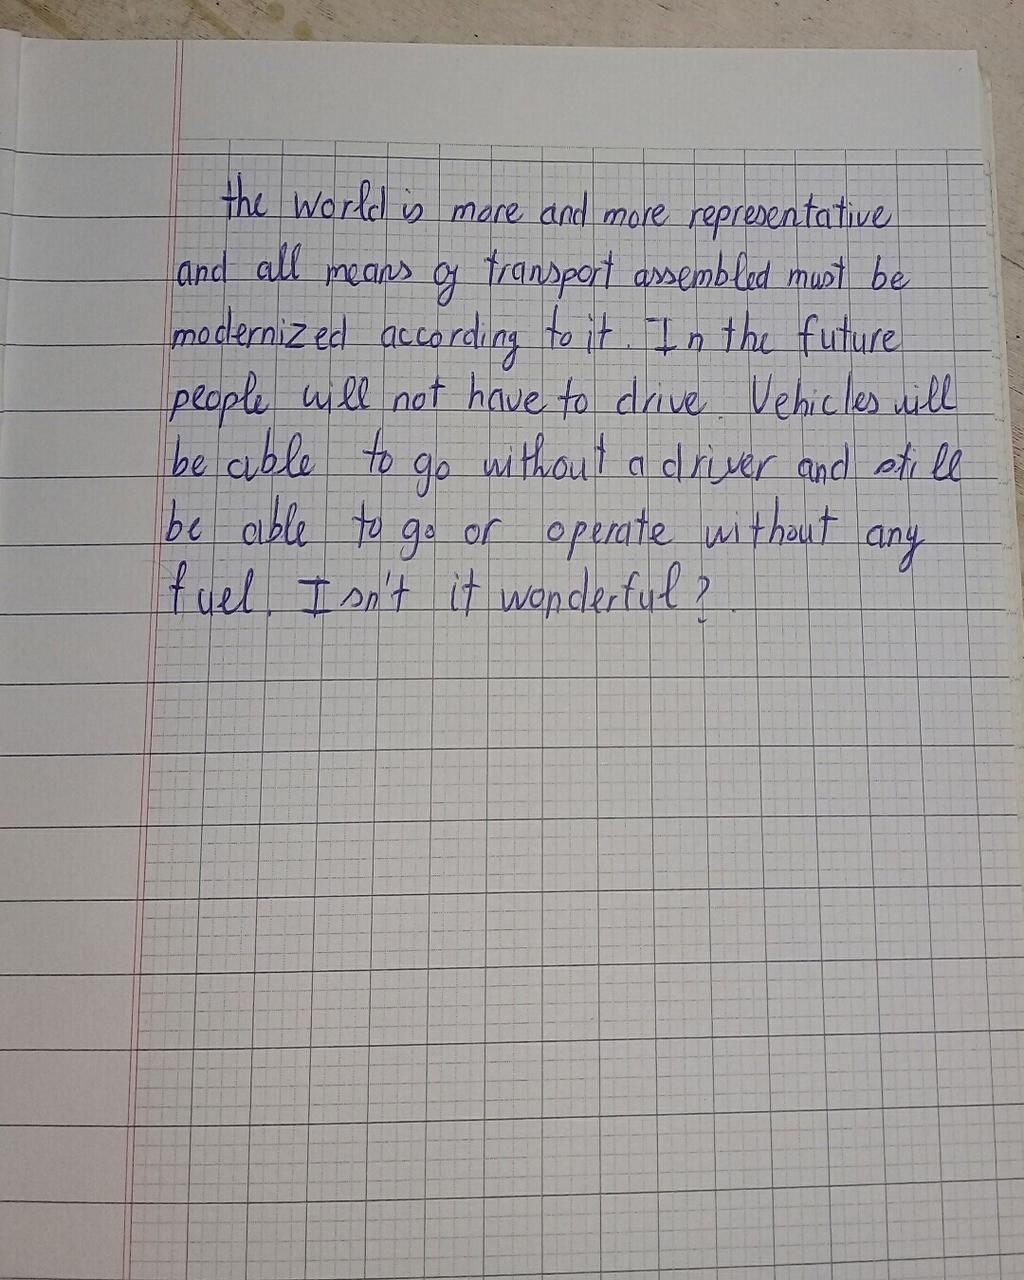 the world is more and more representative
and all means of transport assembled must be
modernized according to it. In the future
people will not have to drive. Vehicles will
be able to go without a driver and still
be able to go or operate without any
fuel. Isn't it wonderful?